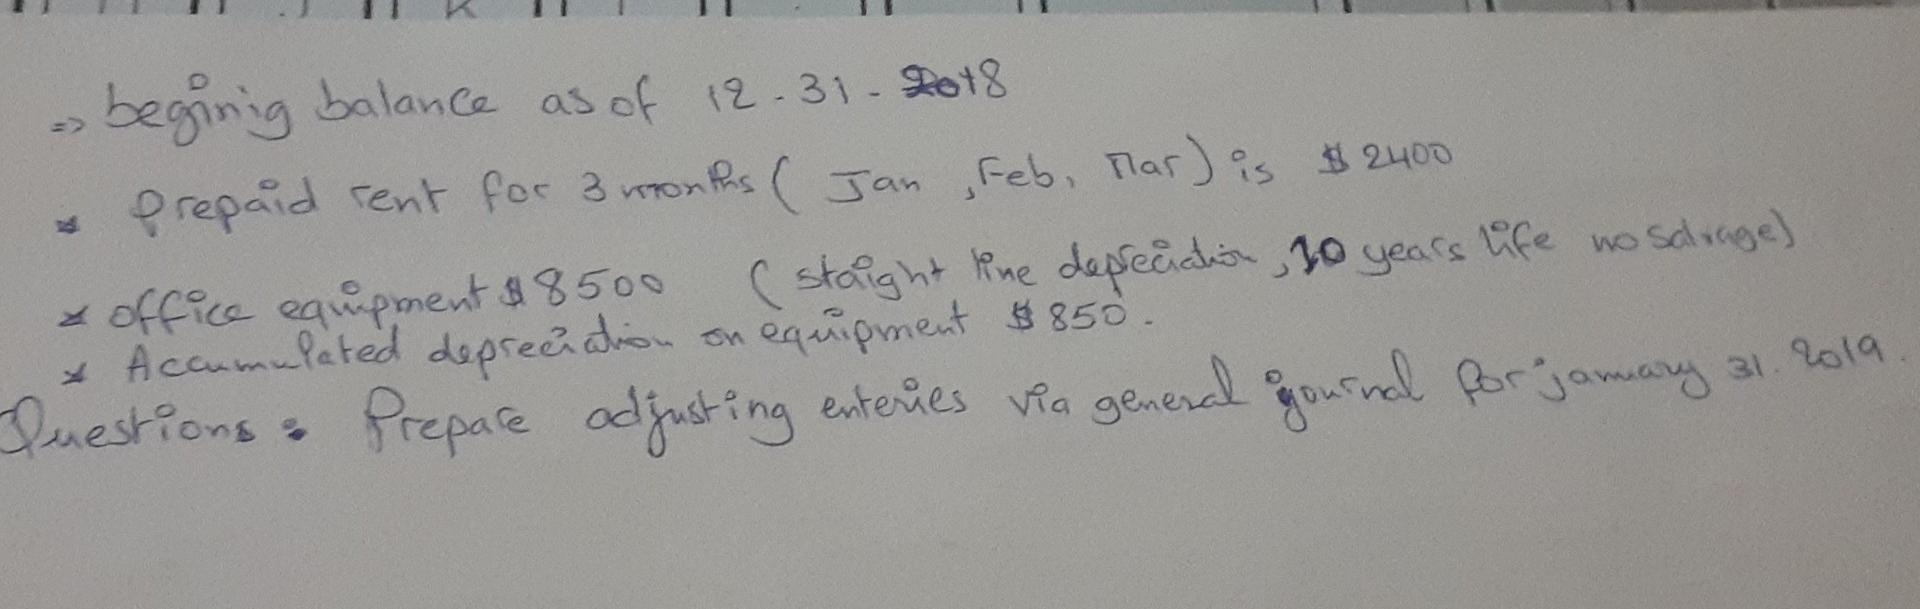 => begining balance as of 12-31-2018
* Prepaid rent for 3 months (Jan, Feb, Mar) is $2400
* office equipment $8500 (staight line depreciation, 10 years life no salvage)
* Accumulated depreciation on equipment $850.
Questions: Prepare adjusting enteries via general journal for january 31. 2019.